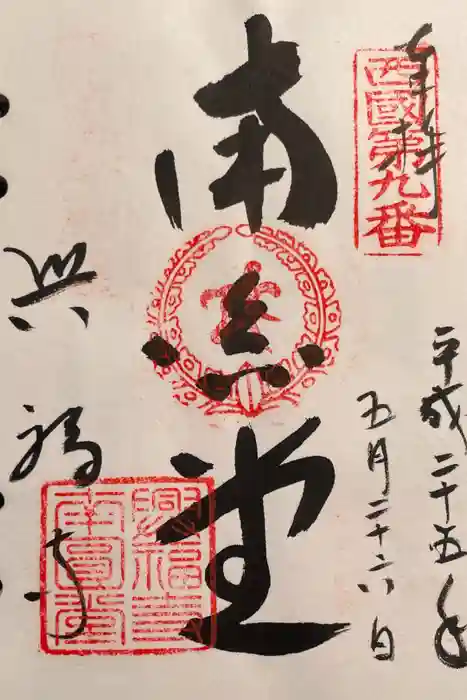 奉拝
西國第九番
平成二十五年
五月二十六日
南無堂
興福寺
興福寺
南圓堂